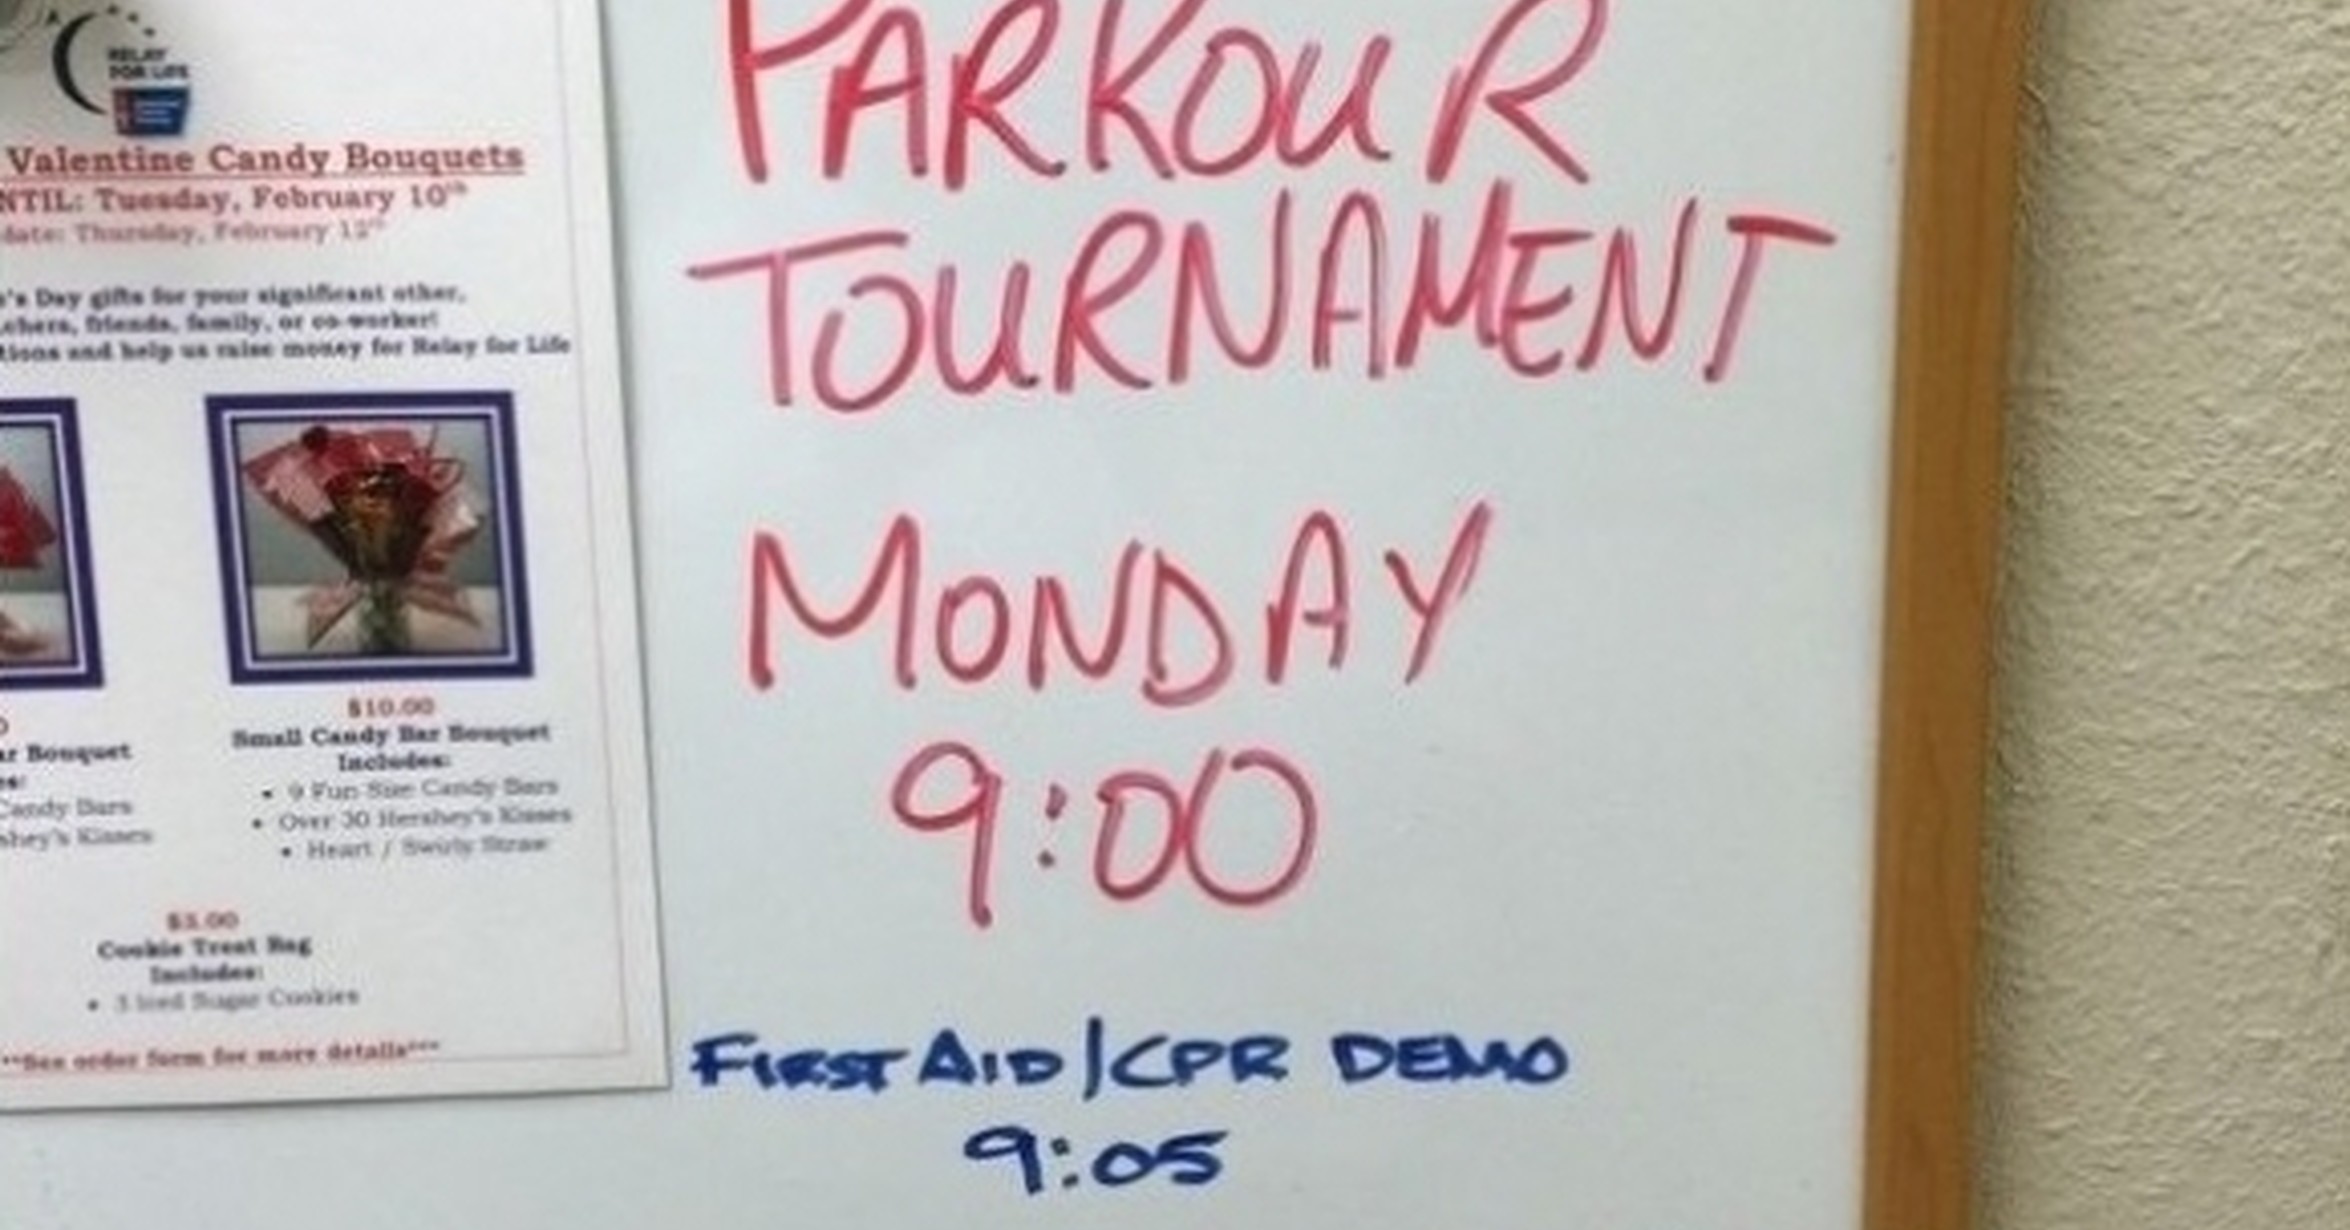 RELAY
FOR LIFE
Valentine Candy Bouquets
NTIL: Tuesday, February 10th
date: Thursday, February 12th
's Day gifts for your significant other,
chers, friends, family, or co-worker!
tions and help us raise money for Relay for Life
$10.00
Small Candy Bar Bouquet
Includes:
• 9 Fun Size Candy Bars
• Over 30 Hershey's Kisses
• Heart / Swirly Straw
ar Bouquet
es:
Candy Bars
shey's Kisses
$3.00
Cookie Treat Bag
Includes:
• 3 Iced Sugar Cookies
**See order form for more details***
PARKOUR
TOURNAMENT
MONDAY
9:00
FIRST AID/CPR DEMO
9:05